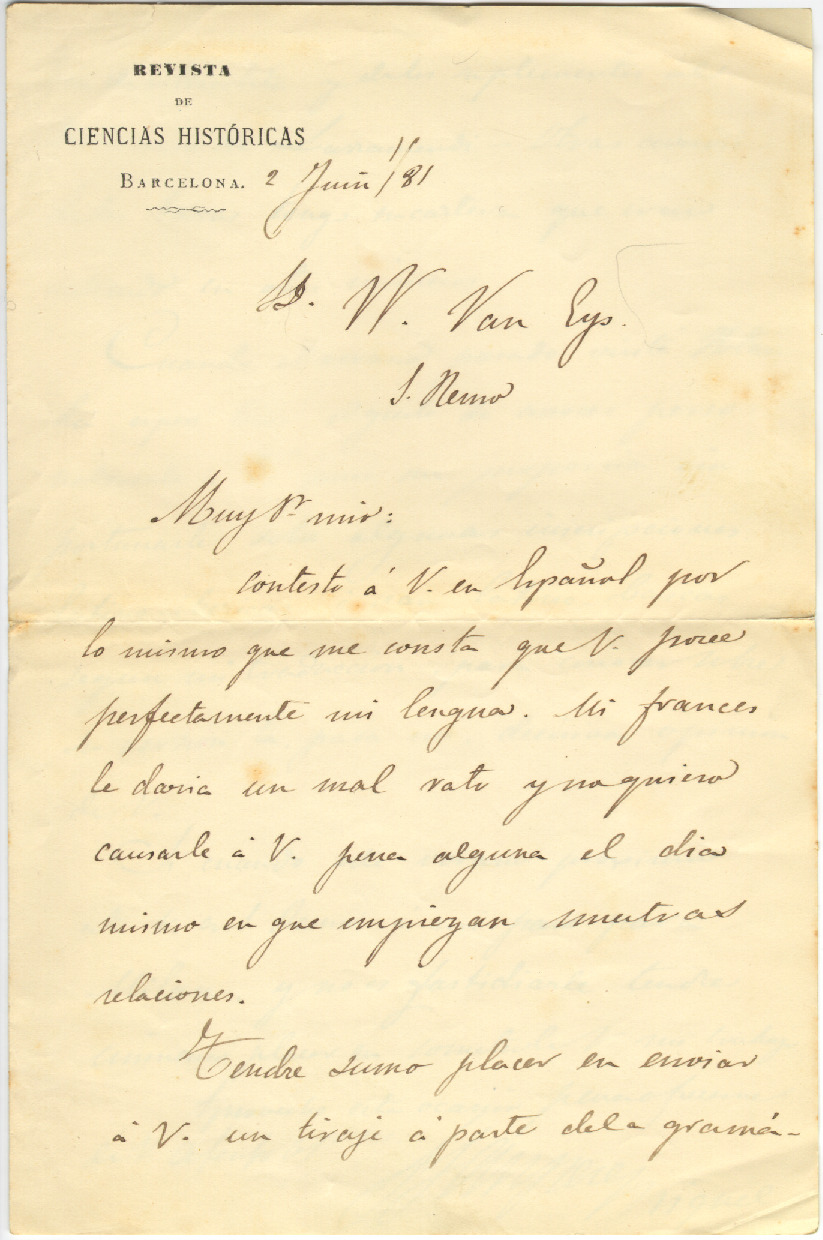 REVISTA
DE
CIENCIAS HISTÓRICAS
BARCELONA. 2 Juin / 81
D. W. Van Eys.
S. Remo
Muy Sr mio:
contesto á V. en Español por
lo mismo que me consta que V. posee
perfectamente mi lengua. Mi frances
le daria un mal rato y no quiero
causarle á V. pena alguna el dia
mismo en que empiezan nuestras
relaciones.
Tendre sumo placer en enviar
á V. un tiraje á parte de la gramá-